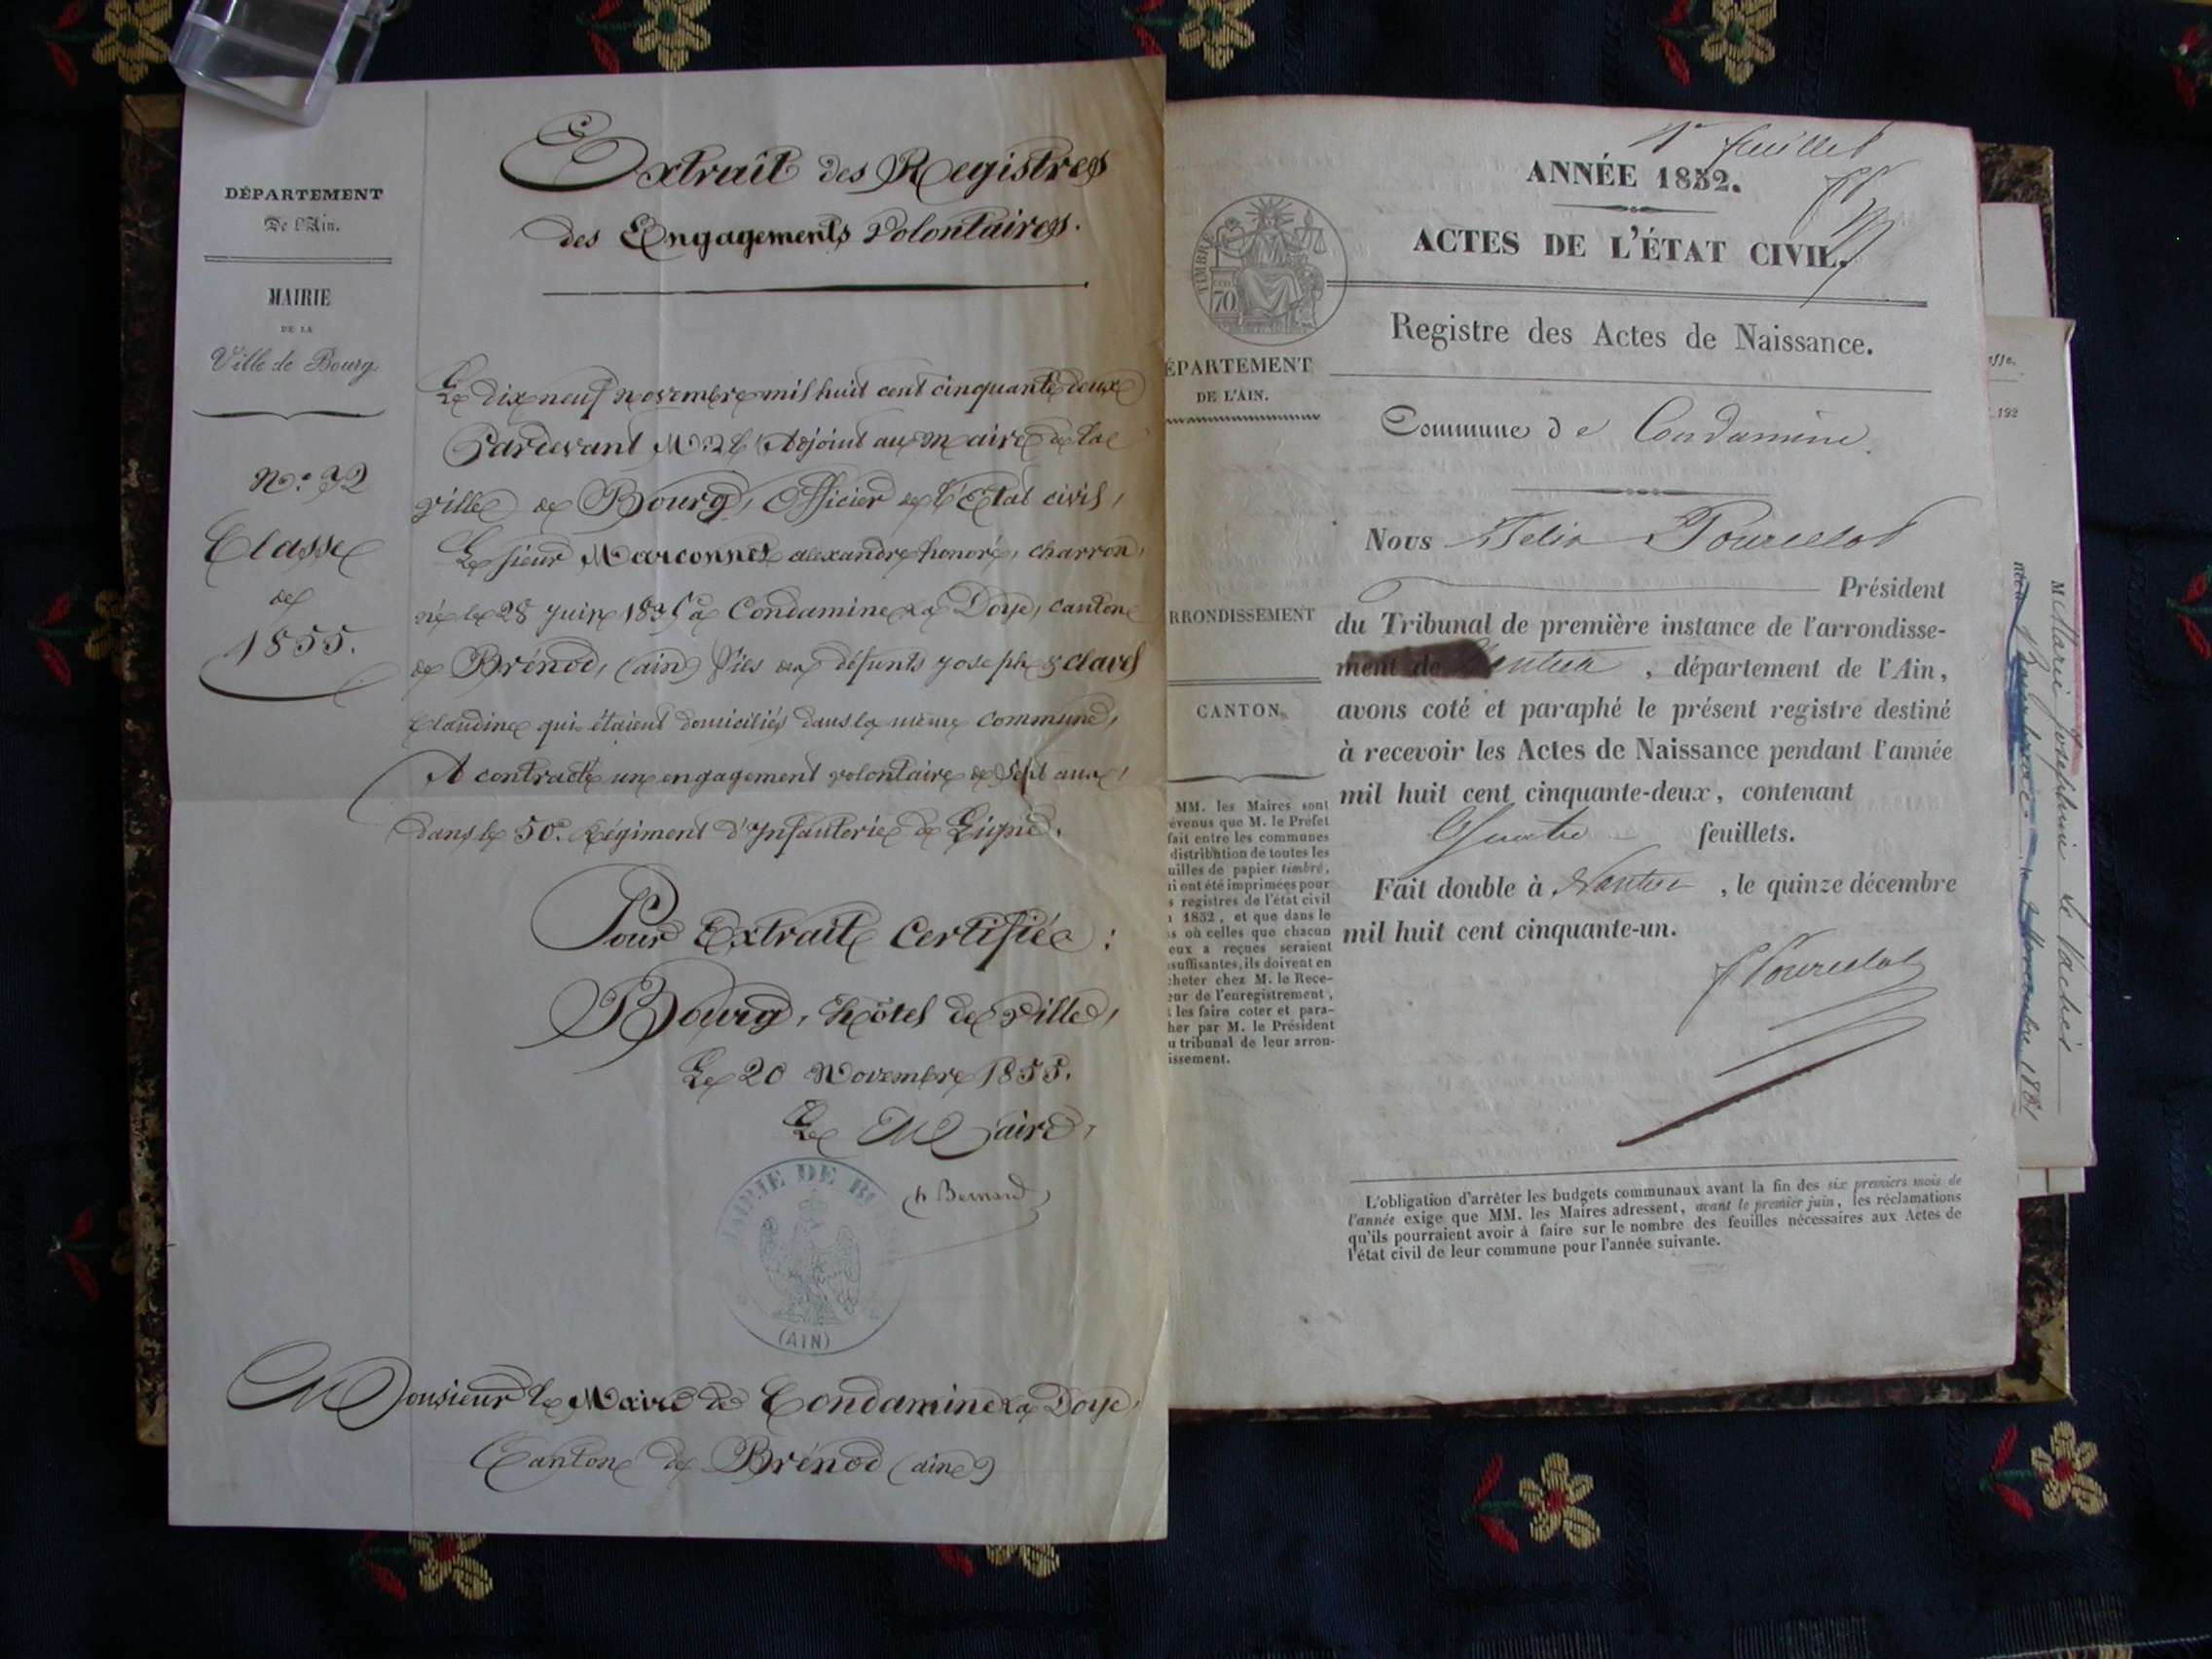 Extrait des Registres
des Engagements Volontaires.
DÉPARTEMENT
De l'Ain.
MAIRIE
DE LA
Ville de Bourg
N.º 92
Classe
de
1855.
Le dix neuf novembre mil huit cent cinquante deux
Pardevant M. l'Adjoint au Maire de la
ville de Bourg, Officier de l'État civil,
Le sieur Marconnet alexandre honoré, charron,
né le 28 juin 1835 à Condamine La Doye, canton
de Brénod, (ain) fils des défunts joseph & Clavel
Claudine qui étaient domiciliés dans la même commune,
A contracté un engagement volontaire de Sept ans,
dans le 50e Régiment d'Infanterie de Ligne.
Pour Extrait Certifié :
Bourg, hôtel de Ville,
Le 20 Novembre 1855.
Le Maire,
Bernard
MAIRIE DE BO
(AIN)
Monsieur le Maire de Condamine La Doye,
Canton de Brénod (ain)
1er feuillet
ANNÉE 1852.
ACTES DE L'ÉTAT CIVIL.
TIMBRE
70
Registre des Actes de Naissance.
ÉPARTEMENT
DE L'AIN.
Commune de Condamine
Nous Felix Pourcelot
Président
RRONDISSEMENT
du Tribunal de première instance de l'arrondisse-
ment de Nantua, département de l'Ain,
CANTON
avons coté et paraphé le présent registre destiné
à recevoir les Actes de Naissance pendant l'année
mil huit cent cinquante-deux, contenant
Quatre feuillets.
Fait double à Nantua, le quinze décembre
mil huit cent cinquante-un.
FPourcelot
MM. les Maires sont
évenus que M. le Préfet
fait entre les communes
distribution de toutes les
uilles de papier timbré,
ui ont été imprimées pour
s registres de l'état civil
1852, et que dans le
s où celles que chacun
eux a reçues seraient
suffisantes, ils doivent en
heter chez M. le Rece-
ur de l'enregistrement,
les faire coter et para-
her par M. le Président
u tribunal de leur arron-
issement.
L'obligation d'arrêter les budgets communaux avant la fin des six premiers mois de
l'année exige que MM. les Maires adressent, avant le premier juin, les réclamations
qu'ils pourraient avoir à faire sur le nombre des feuilles nécessaires aux Actes de
l'état civil de leur commune pour l'année suivante.
esse.
192
M Marie Joséphine Le
le 2 Novembre 1881